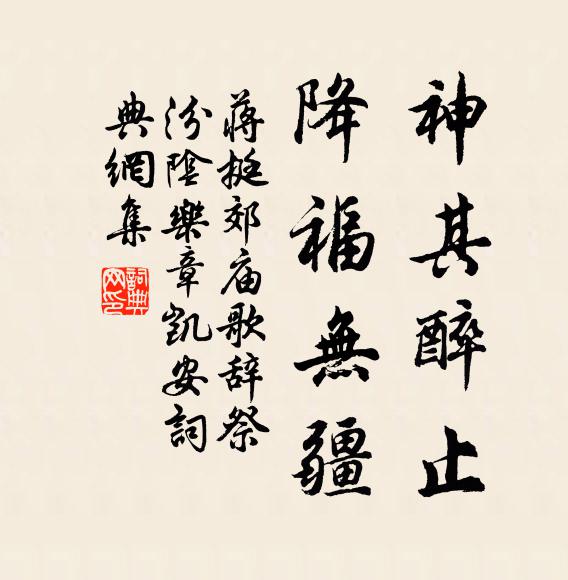 神其醉止
降福無疆
蔣挺郊庙歌辞祭
汾陰樂章凱安詞
典網集
詞典网印